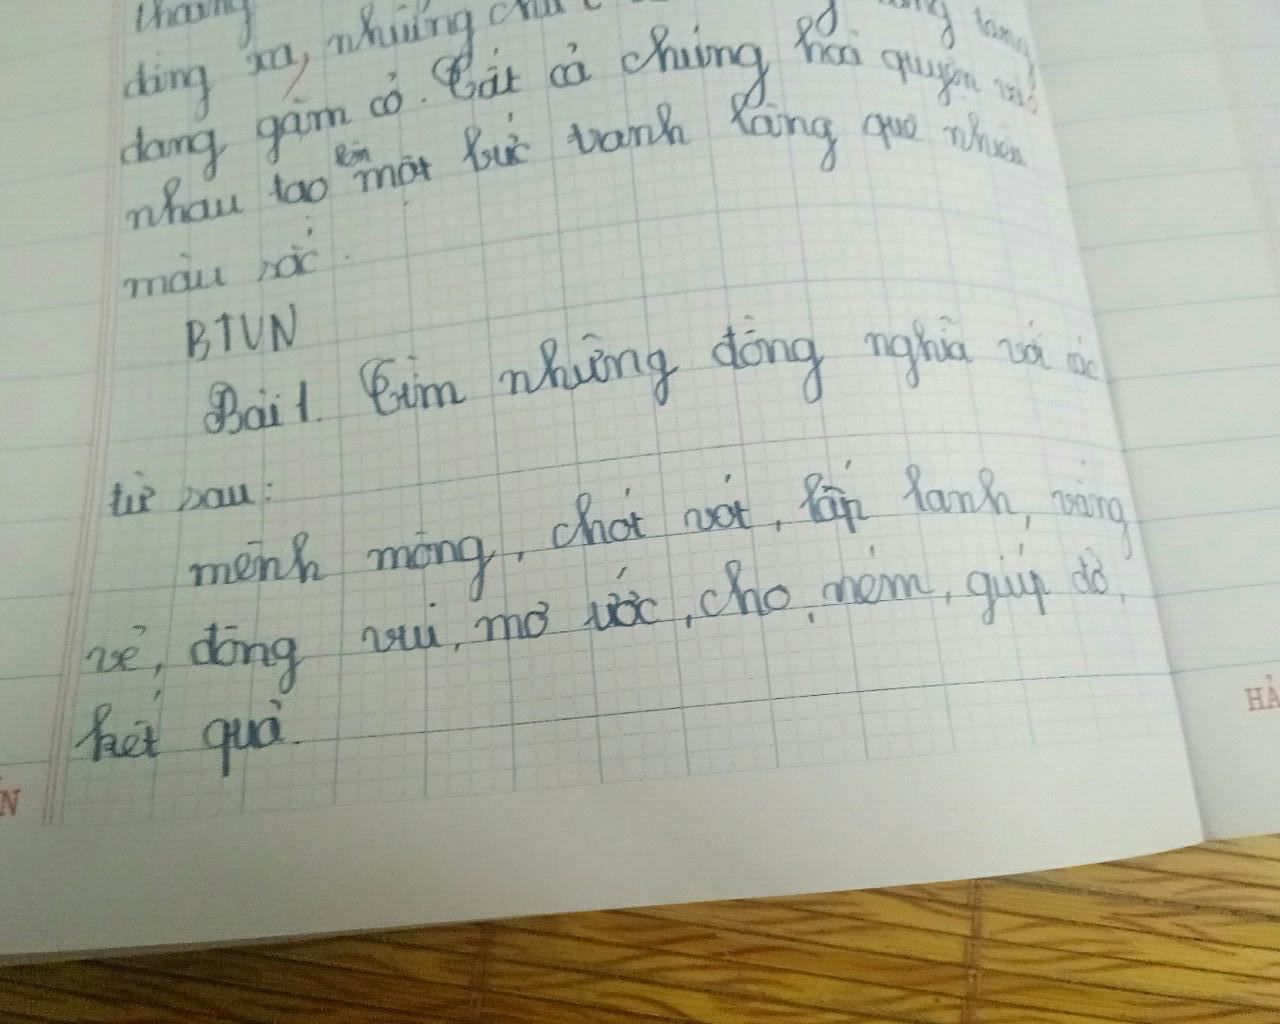 đằng xa, những chú
đang gặm cỏ. Tất cả chúng hoà quyện với
nhau tạo lên một bức tranh làng quê nhiều
màu sắc.
BTVN
Bài 1. Tìm những đồng nghĩa với các
từ sau:
mênh mông, chót vót, lấp lánh, vắng
vẻ, đông vui, mơ ước, cho, ném, giúp đỡ,
kết quả.
HẢ
N